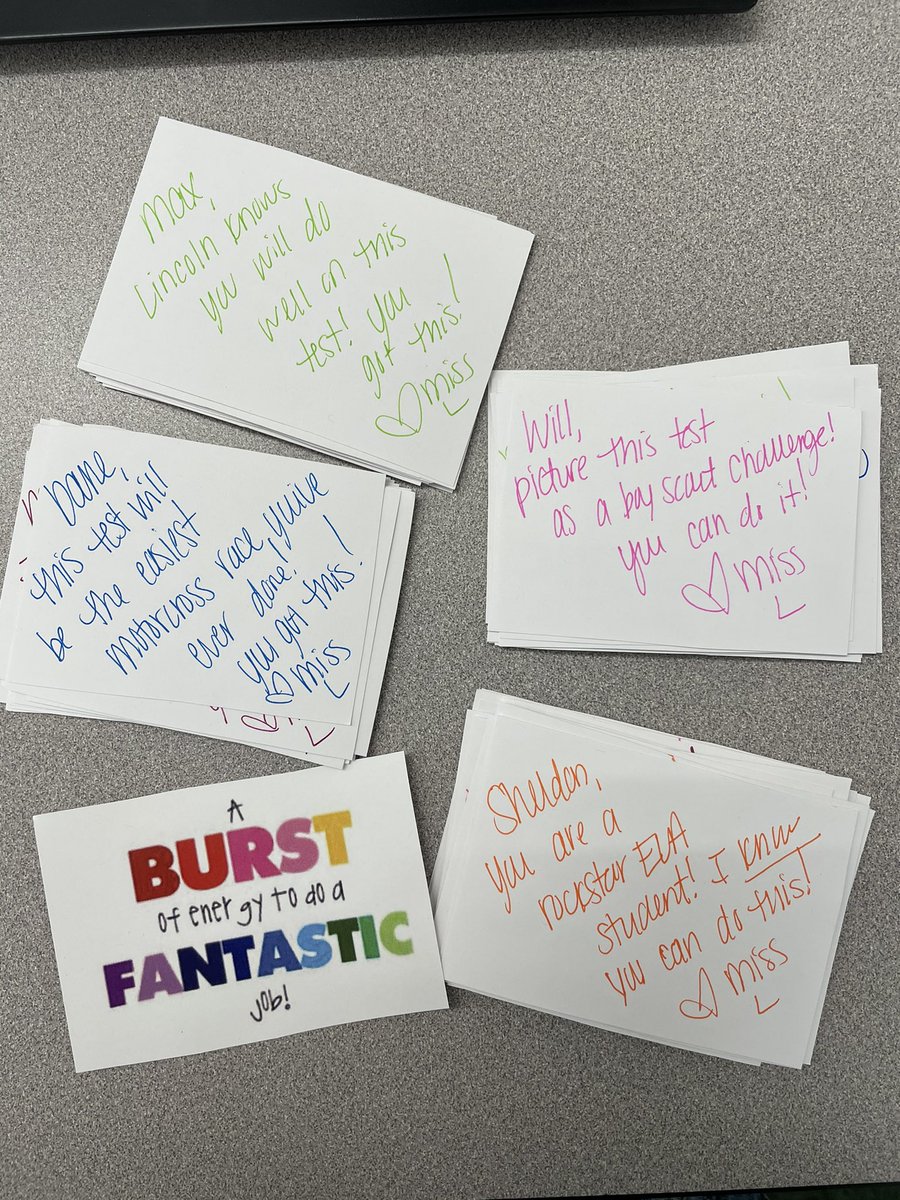 Max,
Lincoln knows
you will do
well on this
test! you
got this!
♡ miss
L
Will,
picture this test
as a boy scout challenge!
you can do it!
♡ miss
L
Dane,
this test will
be the easiest
motorcross race, you've
ever done!
you got this!
♡ miss
L
A
BURST
of energy to do a
FANTASTIC
job!
Sheldon,
you are a
rockstar ELA
student! I know
you can do this!
♡ miss
L